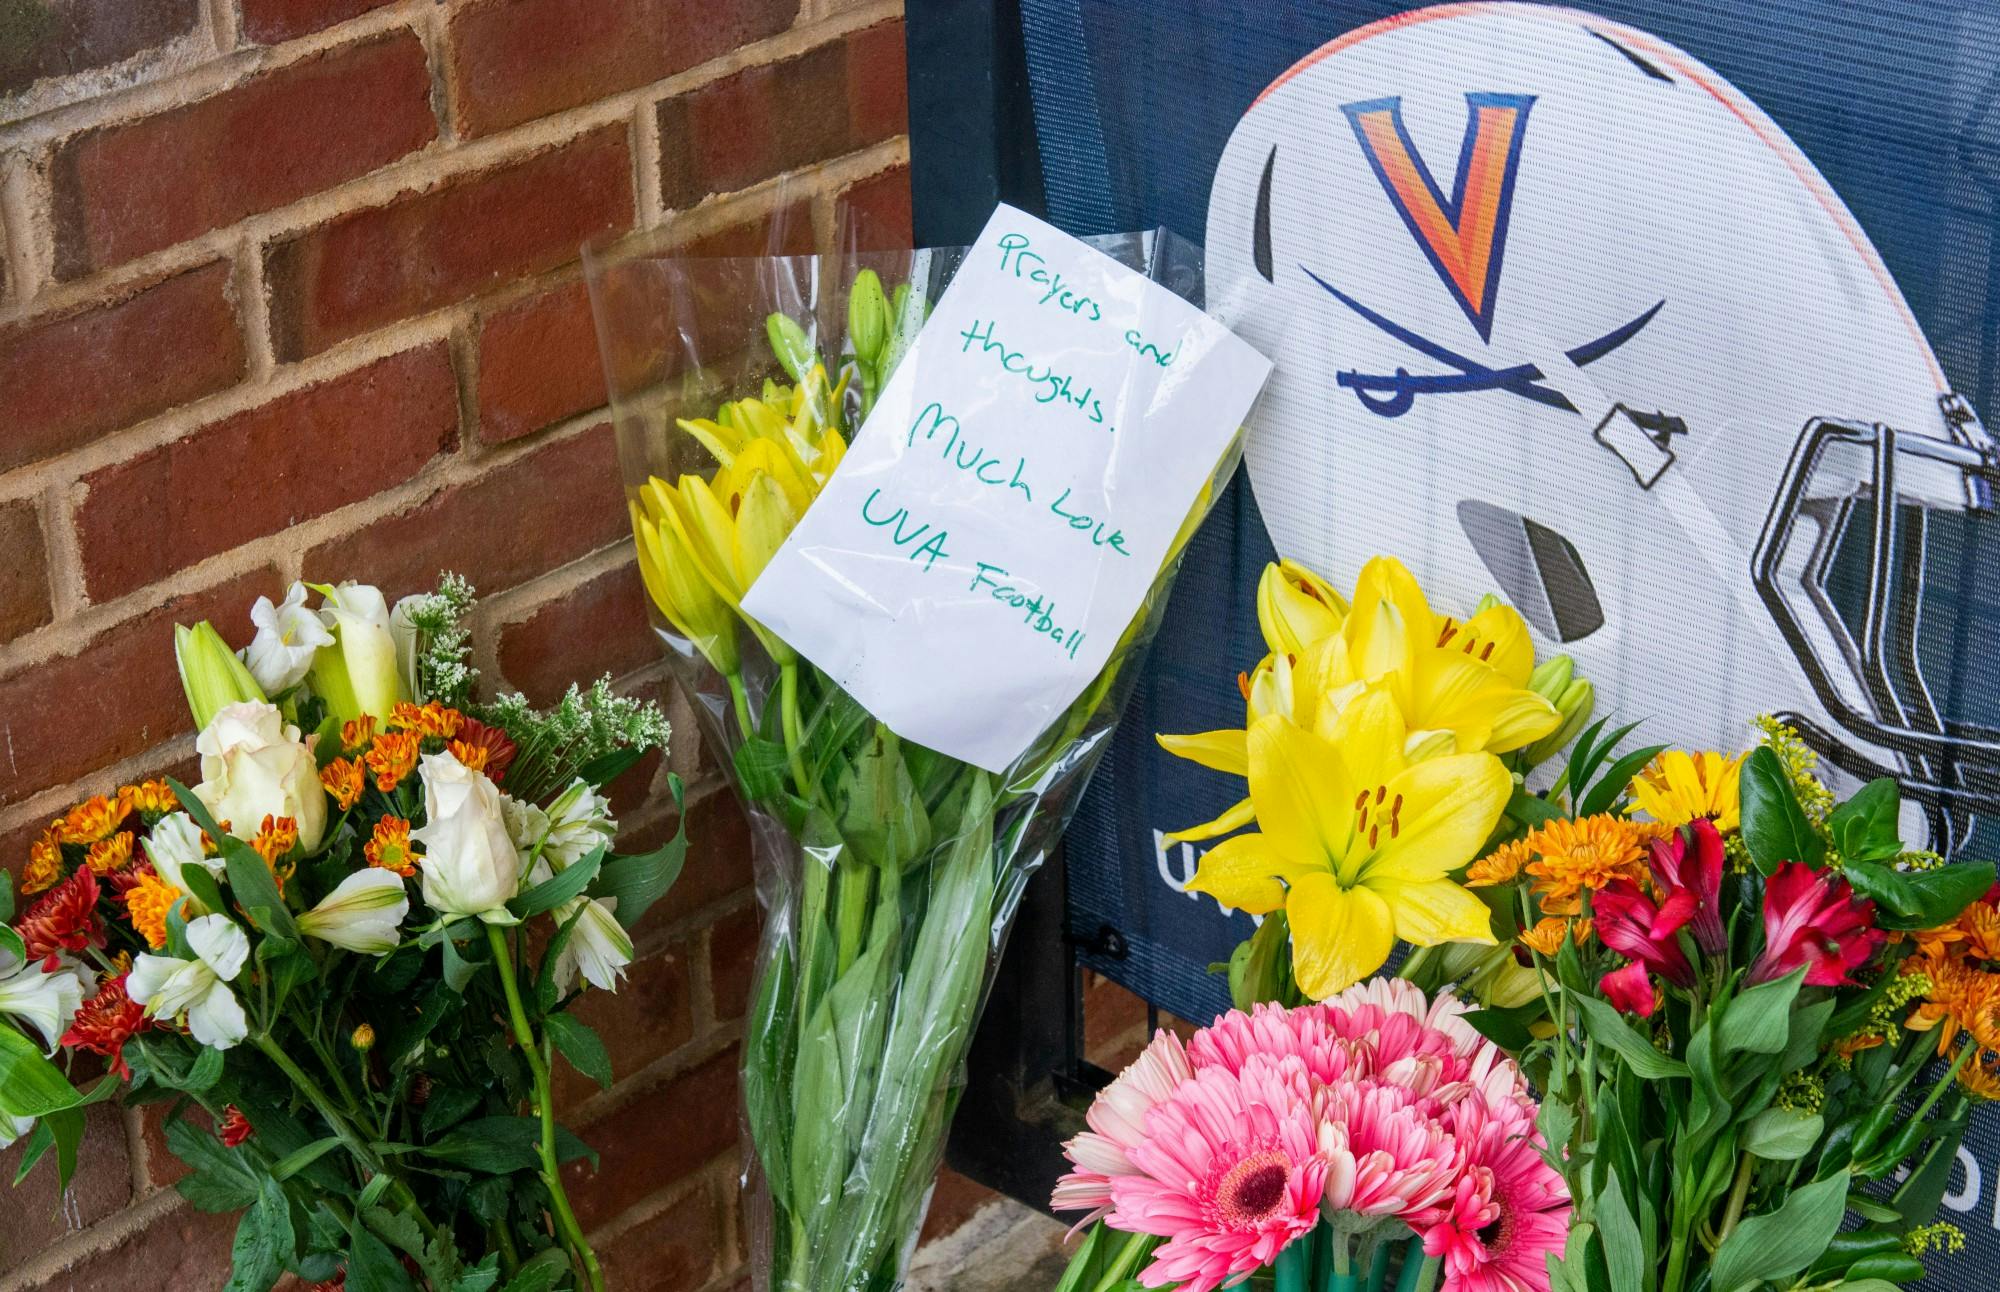 Prayers and
thoughts.
Much Love
UVA Football
V